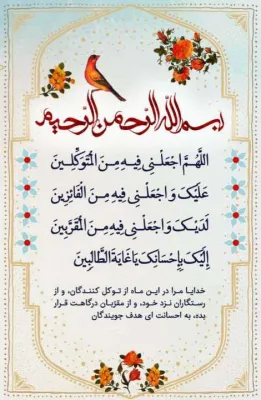 بسم الله الرحمن الرحیم
اللَّهُمَّ اجْعَلْنِی فِیهِ مِنَ الْمُتَوَکِّلِینَ
عَلَیْکَ وَ اجْعَلْنِی فِیهِ مِنَ الْفَائِزِینَ
لَدَیْکَ وَ اجْعَلْنِی فِیهِ مِنَ الْمُقَرَّبِینَ
إِلَیْکَ بِإِحْسَانِکَ یَا غَایَةَ الطَّالِبِینَ
خدایا مرا در این ماه از توکل کنندگان، و از
رستگاران نزد خود، و از مقرّبان درگاهت قرار
بده، به احسانت ای هدف جویندگان